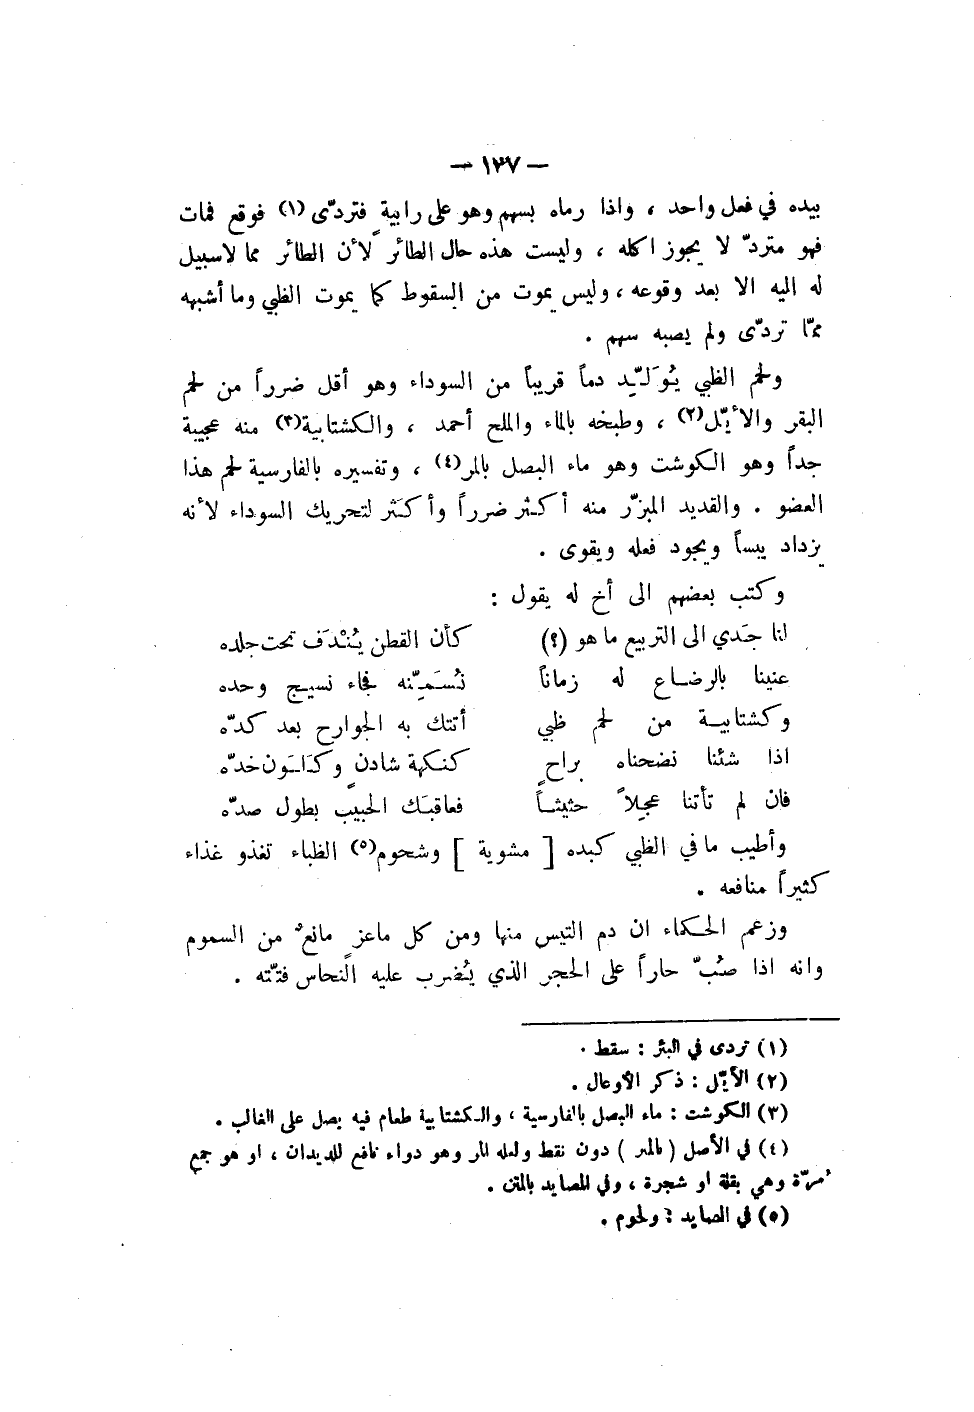 — ١٣٧ —
بيده في فعل واحد ، واذا رماه بسهم وهو على رابيةٍ فتردّى (١) فوقع فمات
فهو متردّ لا يجوز اكله ، وليست هذه حال الطائر لأن الطائر مما لاسبيل
له اليه الا بعد وقوعه ، وليس يموت من السقوط كما يموت الظبي وما أشبهه
ممّا تردّى ولم يصبه سهم .
ولحم الظبي يُوَلّيِد دماً قريباً من السوداء وهو أقل ضرراً من لحم
البقر والأيّل(٢) ، وطبخه بالماء والملح أحمد ، والكشتابية(٣) منه عجيبة
جداً وهو الكوشت وهو ماء البصل بالمر(٤) ، وتفسيره بالفارسية لحم هذا
العضو . والقديد المبزّر منه أكثر ضرراً وأكثَر لتحريك السوداء لأنه
يزداد يبساً ويجود فعله ويقوى .
وكتب بعضهم الى أخ له يقول :
لنا جَدي الى التربيع ما هو (؟) كأن القطن يُنْدَف تحت جلده
عنينا بالرضاع له زماناً نُسَمِّنه فجاء نسيج وحده
وكشتابية من لحم ظبي أتتك به الجوارح بعد كدّه
اذا شئنا نضحناه براحٍ كنكهة شادنٍ وكلون خدّه
فان لم تأتنا عجِلاً حثيثاً فعاقبَك الحبيب بطول صدّه
وأطيب ما في الظبي كبده [ مشوية ] وشحوم(٥) الظباء تغذو غذاء
كثيراً منافعه .
وزعم الحكماء ان دم التيس منها ومن كل ماعزٍ مانعٌ من السموم
وانه اذا صُبّ حاراً على الحجر الذي يُضرب عليه النحاس فتّته .
(١) تردى في البئر : سقط .
(٢) الأيّل : ذكر الأوعال .
(٣) الكوشت : ماء البصل بالفارسية ، والكشتابية طعام فيه بصل على الغالب .
(٤) في الأصل ( بالمر ) دون نقط ولعله المر وهو دواء نافع للديدان ، او هو جمع
مُرّة وهي بقلة او شجرة ، وفي المصايد بالمتن .
(٥) في المصايد : ولحوم .